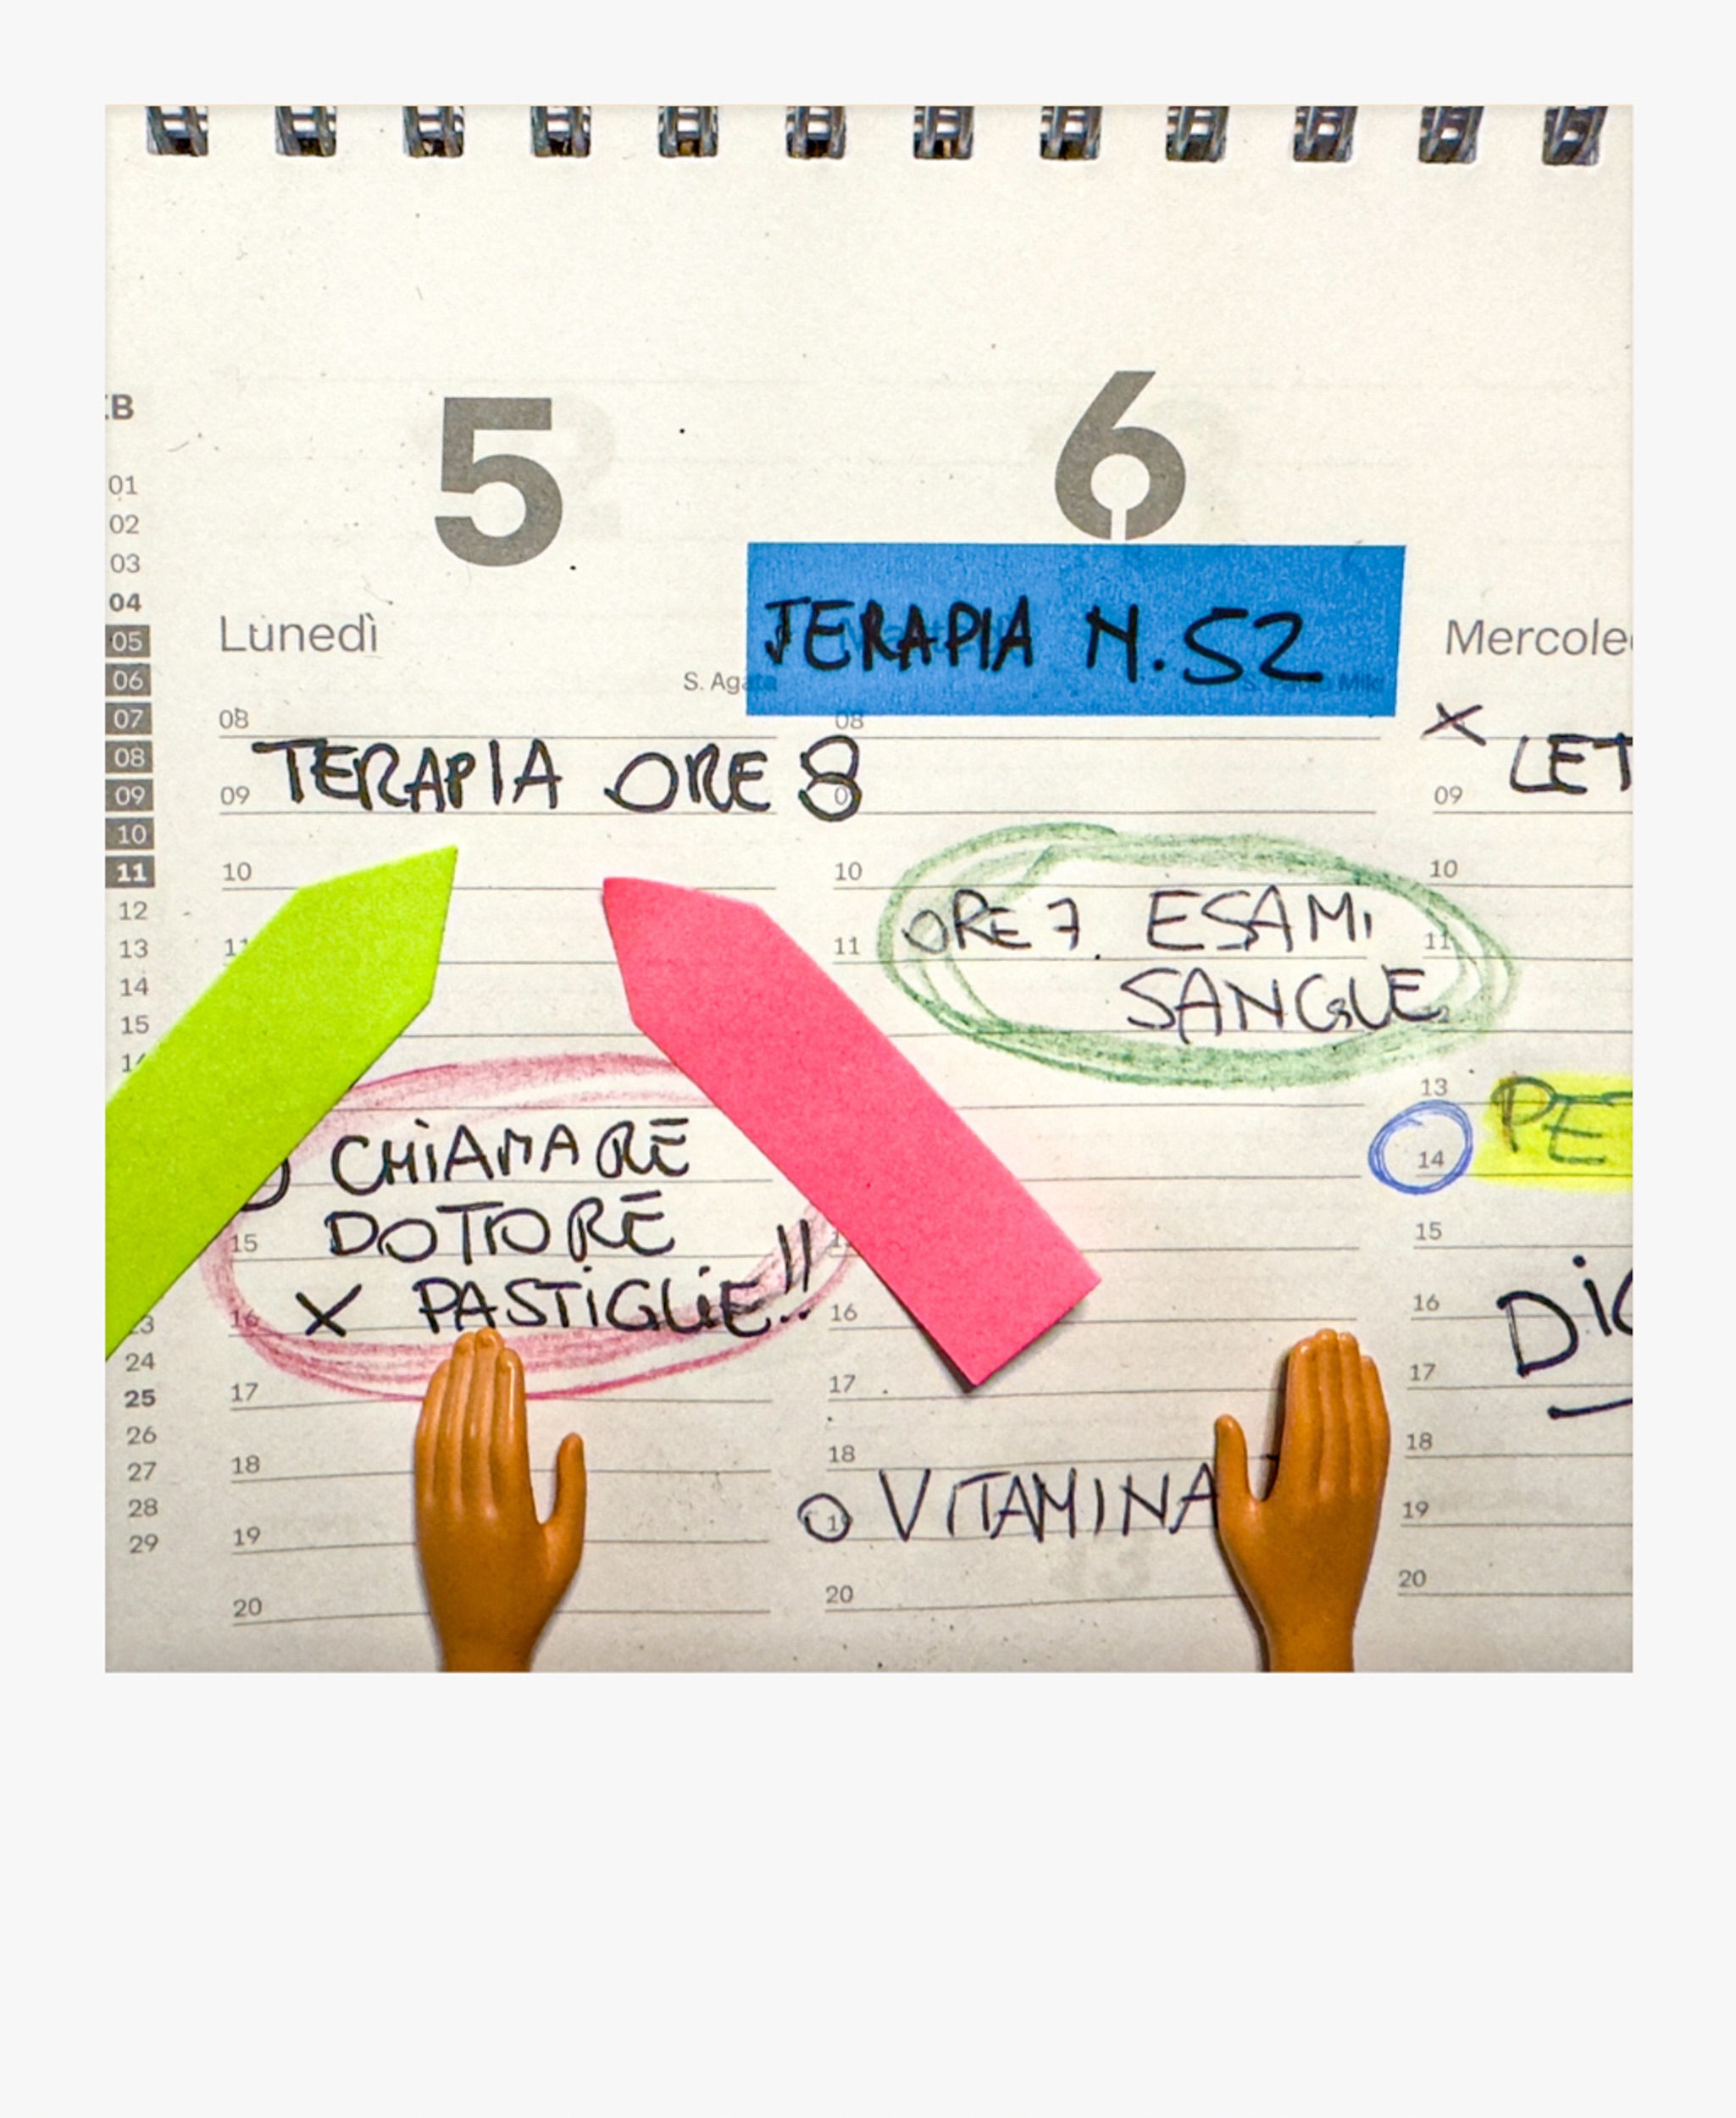 5
6
Lunedì
TERAPIA N. 52
Mercole
S. Aga
TERAPIA ORE 8
LET
ORE 7 ESAMI
SANGUE
CHIAMARE
DOTTORE
X PASTIGLIE!!
O VITAMINA
PET
DIC
01
02
03
04
05
06
07
08
09
10
11
12
13
14
15
24
25
26
27
28
29
08
09
10
11
15
16
17
18
19
20
08
10
11
16
17
18
19
20
09
10
11
13
14
15
16
17
18
19
20